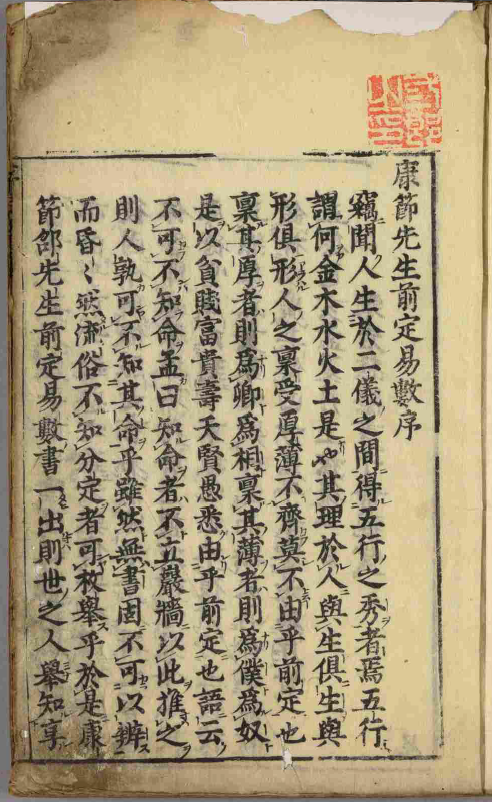 康節先生前定易數序
竊聞人生於二儀之間得五行之秀者焉五行
謂何金木水火土是也其理於人與生俱生與
形俱形人之稟受厚薄不齊莫不由乎前定也
稟其厚者則為卿為相稟其薄者則為僕為奴
是以貧賤富貴壽夭賢愚悉由乎前定也語云
不可不知命孟曰知命者不立巖墻以此推之
則人孰可不知其命乎雖然無書固不可以辨
而昏〻然流俗不知分定者可枚舉乎於是康
節邵先生前定易數書一出則世之人舉知享